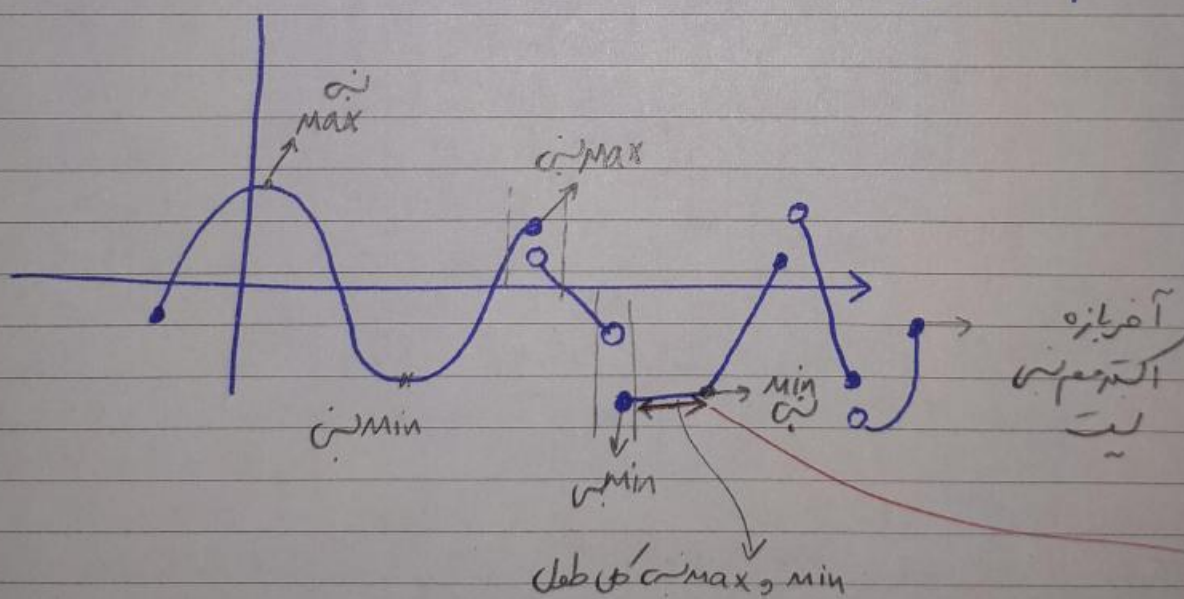 نسبی
max
max نسبی
min نسبی
min نسبی
min
نسبی
آخر بازه
اکسترمم نسبی
نیست
min و max نسبی کل طول